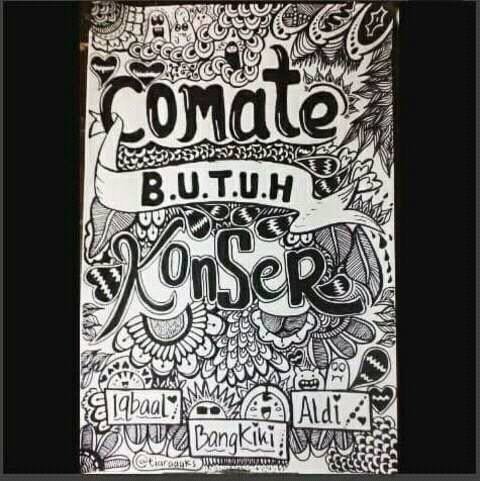 Comate
B.U.T.U.H
KonSeR
Iqbaal
BangKiki
Aldi